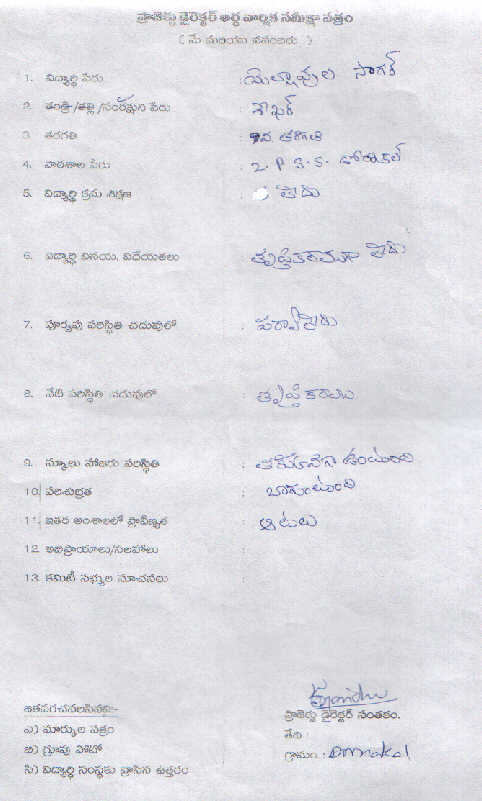 ప్రాజెక్టు డైరెక్టర్ అర్ధ వార్షిక సమీక్షా పత్రం
( మే మరియు నవంబరు )
1. విద్యార్థి పేరు : సాగర్
2. తండ్రి/తల్లి/సంరక్షుని పేరు : శేఖర్
3. తరగతి : 9వ తరగతి
4. పాఠశాల పేరు : Z. P. S. S.
5. విద్యార్థి క్రమ శిక్షణ :
6. విద్యార్థి వినయ, విధేయతలు : తృప్తికరముగా
7. పూర్వపు పరిస్థితి చదువులో : పర్వాలేదు
8. నేటి పరిస్థితి చదువులో : తృప్తికరము
9. స్కూలు హాజరు పరిస్థితి : ఉంటుంది
10. పరిశుభ్రత : బాగుంటుంది
11. ఇతర అంశాలలో ప్రావీణ్యత : ఆటలు
12. అభిప్రాయాలు/సలహాలు :
13. కమిటీ సభ్యుల సూచనలు :
జతపరచవలసినవి:-
ఎ) మార్కుల పత్రం
బి) గ్రూపు ఫోటో
సి) విద్యార్థి సంస్థకు వ్రాసిన ఉత్తరం
ప్రాజెక్టు డైరెక్టర్ సంతకం.
తేది :
గ్రామం :